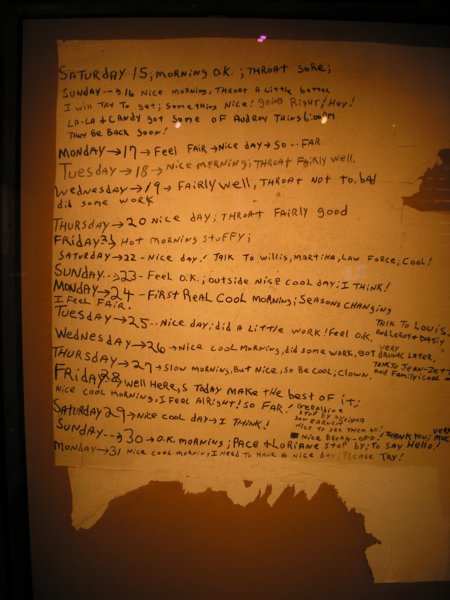 SATURDAY 15; MORNING O.K.; THROAT SORE;
SUNDAY --→ 16 NICE MORNING, THROAT A LITTLE BETTER
I WILL TRY TO GET; SOMETHING NICE! GOING RIGHT! HEY!
LA-LA & CANDY GOT SOME OF AUDREY THINGS
THEY BE BACK SOON!
MONDAY → 17 → FEEL FAIR → NICE DAY → SO--FAR
TUESDAY → 18 → NICE MERNING; THROAT FAIRLY WELL.
WEDNESDAY → 19 → FAIRLY WELL, THROAT NOT TO. BAD
DID SOME WORK
THURSDAY → 20 NICE DAY; THROAT FAIRLY GOOD
FRIDAY 21 HOT MORNING STUFFY;
SATURDAY → 22 - NICE DAY! TALK TO WILLIS, MARTINA, LAW FORCE; COOL!
SUNDAY --→ 23 - FEEL O.K.; OUTSIDE NICE COOL DAY; I THINK!
MONDAY → 24 - FIRST REAL COOL MORNING; SEASONS CHANGING
I FEEL FAIR!
TUESDAY → 25 -- NICE DAY; DID A LITTLE WORK! FEEL O.K. TALK TO LOUIS,
AND LEROY + DAISY
WEDNESDAY → 26 → NICE COOL MORNING, DID SOME WORK, GOT VERY DRUNK LATER,
THURSDAY → 27 → SLOW MORNING, BUT NICE, SO BE COOL; CLOWN. TALK TO
AND FAMILY; COOL
FRIDAY 28, WELL HERE, IS TODAY MAKE THE BEST OF IT;
NICE COOL MORNING, I FEEL ALRIGHT! SO FAR! GERALDINE
STOP BY
NICE TO SEE THEM ALL;
SATURDAY 29 → NICE COOL DAY → I THINK!
NICE BREAK-OFF! THANK YOU; VERY MUCH
SUNDAY --→ 30 → O.K. MORNING; PACE + LORIANE STOP BY; TO SAY HELLO!
MONDAY → 31 NICE COOL MORNING I NEED TO HAVE A NICE DAY; PLEASE TRY!